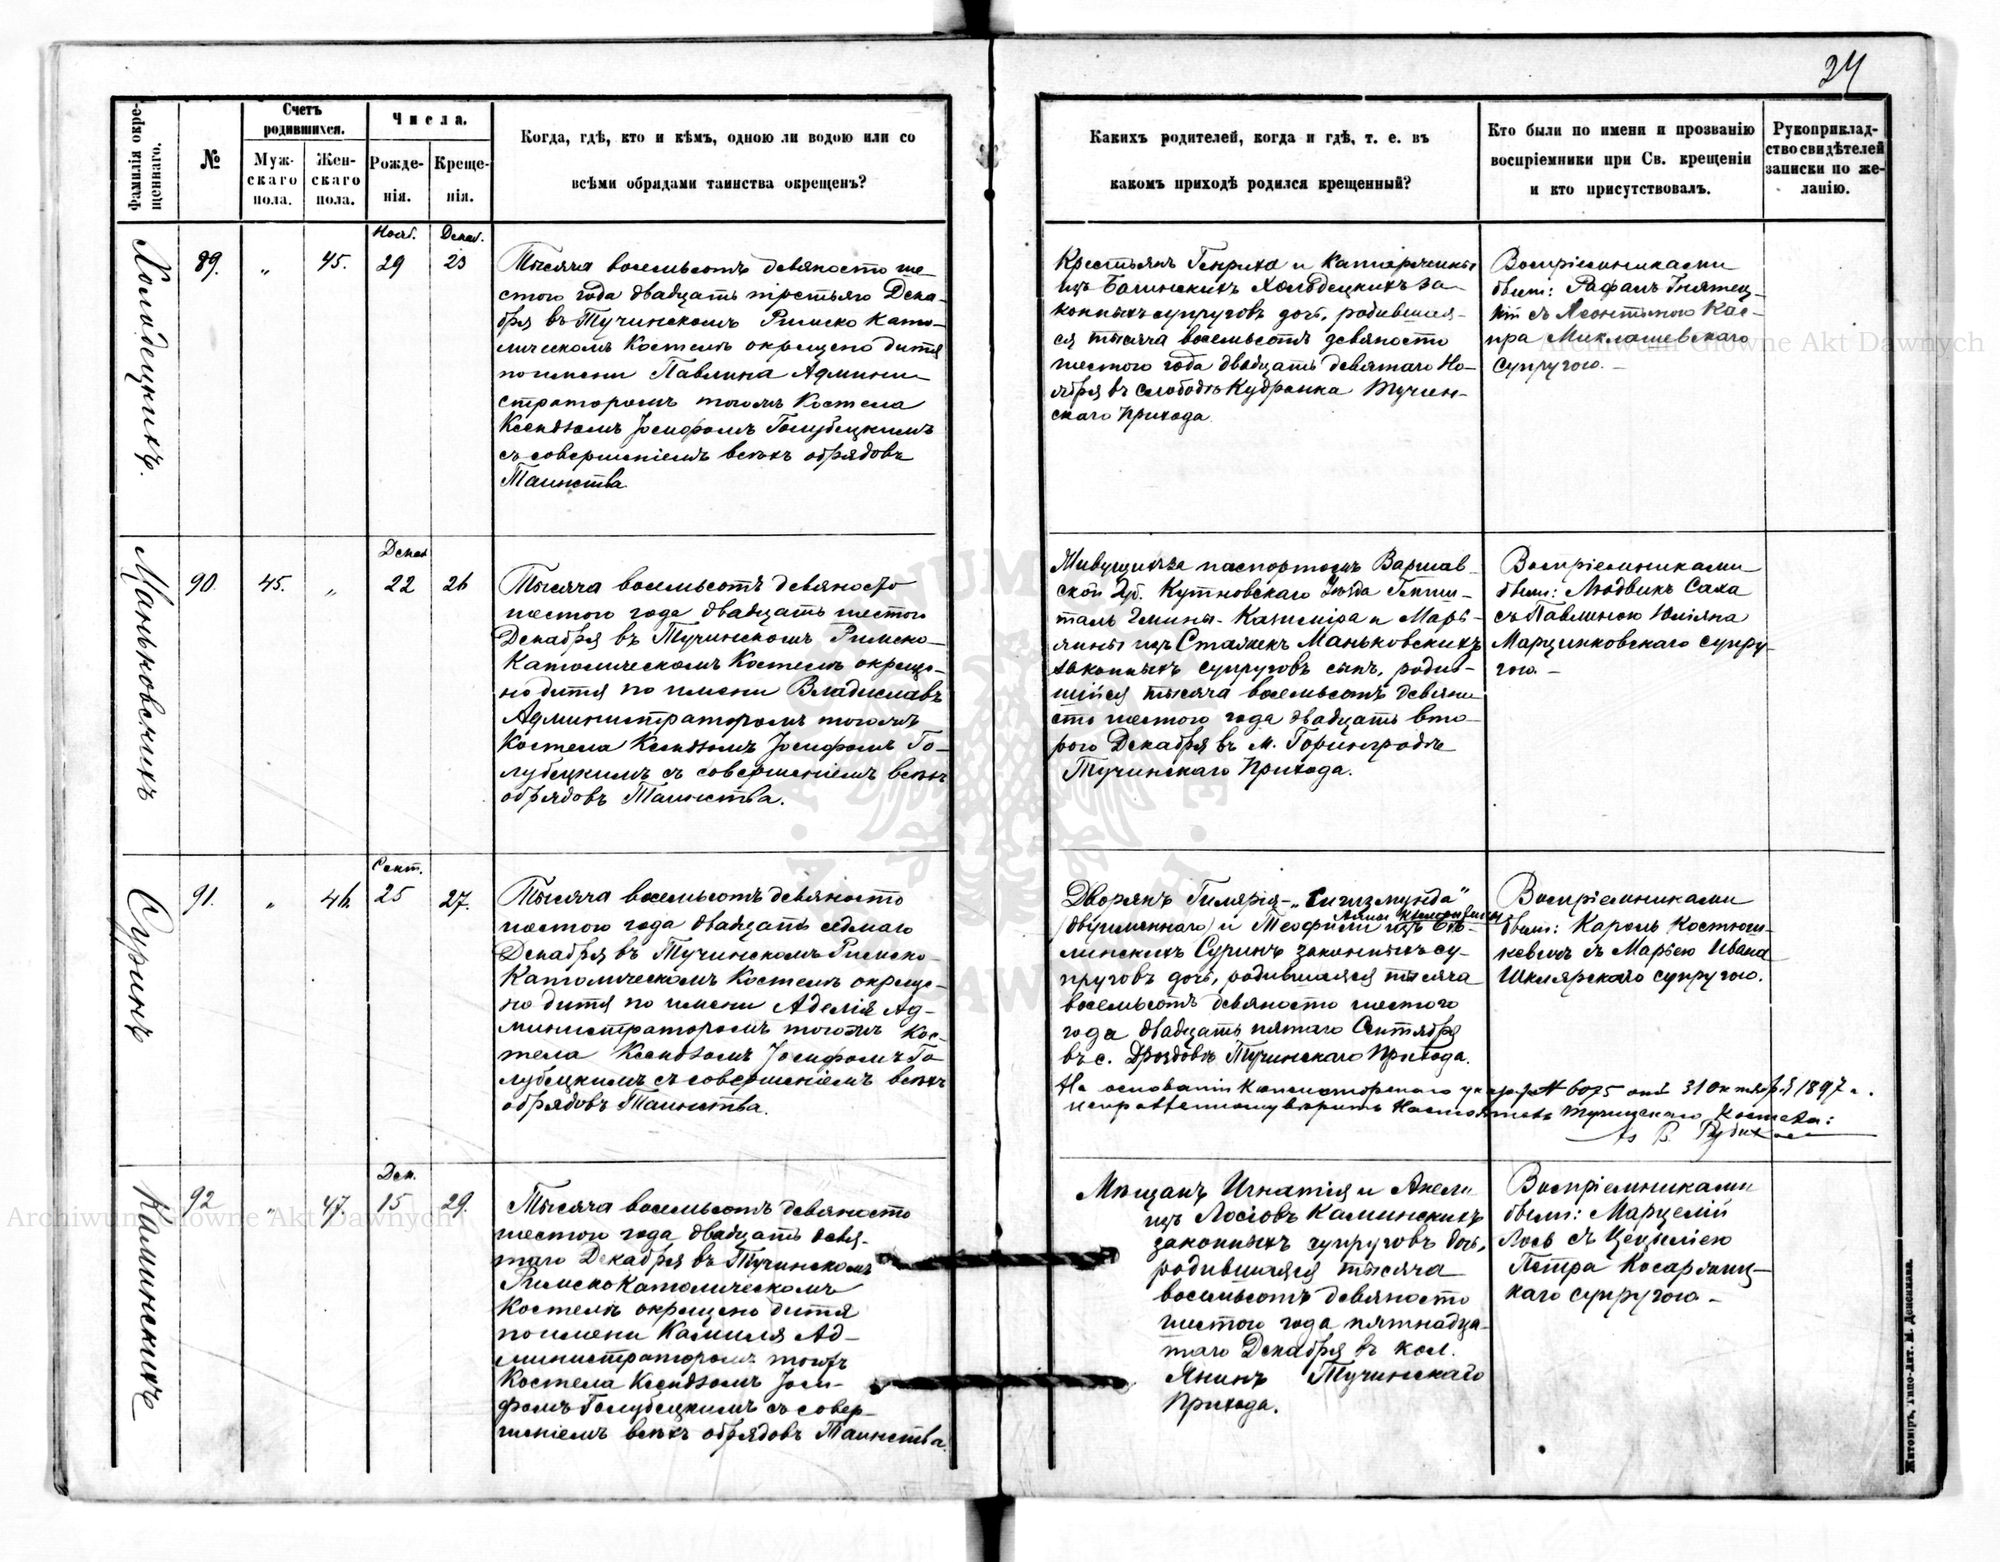 24
Фамилія окре-
щеннаго.
№
Счетъ
родившихся.
Муж-
скаго
пола.
Жен-
скаго
пола.
Числа.
Рожде-
нія.
Креще-
нія.
Когда, гдѣ, кто и кѣмъ, одною ли водою или со
всѣми обрядами таинства окрещенъ?
Какихъ родителей, когда и гдѣ, т. е. въ
какомъ приходѣ родился крещенный?
Кто были по имени и прозванію
воспріемники при Св. крещеніи
и кто присутствовалъ.
Рукоприклад-
ство свидѣтелей
записки по же-
ланію.
Холодецкихъ.
89.
„
45.
Нояб.
29
Декаб.
23
Тысяча восемьсотъ девяносто ше-
стого года двадцать третьяго Дека-
бря въ Тучинскомъ Римско Като-
лическомъ Костелѣ окрещено дитя
по имени Павлина Админи-
страторомъ тогожъ Костела
Ксендзомъ Іосифомъ Голубецкимъ
съ совершеніемъ всѣхъ обрядовъ
Таинства.
Крестьянъ Генриха и Катаржины
изъ Холодецкихъ за-
конныхъ супруговъ дочь, родившая-
ся тысяча восемьсотъ девяносто
шестого года двадцать девятаго Но-
ября въ слободѣ Кудранка Тучин-
скаго Прихода.
Воспріемниками
были: Рафалъ Гнятец-
кій съ Леонтиною Кас-
пра Миклашевскаго
супругою. –
Маньковскихъ
90.
45.
„
Декаб
22
26
Тысяча восемьсотъ девяносто
шестого года двадцать шестого
Декабря въ Тучинскомъ Римско-
Католическомъ Костелѣ окреще-
но дитя по имени Владиславъ
Администраторомъ тогожъ
Костела Ксендзомъ Іосифомъ Го-
лубецкимъ съ совершеніемъ всѣхъ
обрядовъ Таинства.
Живущихъ за паспортомъ Варшав-
ской Губ. Кутновскаго Уѣзда
Гмины - Казиміра и Марь-
янны изъ Сталжекъ Маньковскихъ
законныхъ супруговъ сынъ, родив-
шійся тысяча восемьсотъ девяно
сто шестого года двадцать вто-
рого Декабря въ м. Горинградѣ
Тучинскаго Прихода.
Воспріемниками
были: Людвикъ Саха
съ Павлиною Юліяна
Марцинковскаго супру-
гою. –
Суринъ
91.
„
46.
Сент.
25
27.
Тысяча восемьсотъ девяносто
шестого года двадцать седмаго
Декабря въ Тучинскомъ Римско-
Католическомъ Костелѣ окреще-
но дитя по имени Аделія Ад-
министраторомъ тогожъ Кос-
тела Ксендзомъ Іосифомъ Го-
лубецкимъ съ совершеніемъ всѣхъ
обрядовъ Таинства.
Дворянъ Гилярія-„Сигизмунда“
(двуименнаго) и Теофили изъ Бѣ-
линскихъ Суринъ законныхъ су-
пруговъ дочь, родившаяся тысяча
восемьсотъ девяносто шестого
года двадцать пятаго Сентября
въ с. Дроздовѣ Тучинскаго Прихода.
На основаніи Консисторскаго указа № 6075 отъ 31 Октября 1897 г.
исправленному вѣрить Настоятель Тучинскаго Костела:
Воспріемниками
были: Кароль Костюш-
кевичъ съ Марьею Ивана
Шклярскаго супругою.
Каминскихъ
92
„
47.
Дек.
15
29.
Тысяча восемьсотъ девяносто
шестого года двадцать девя-
таго Декабря въ Тучинскомъ
Римско Католическомъ
Костелѣ окрещено дитя
по имени Камиля Ад-
министраторомъ тогожъ
Костела Ксендзомъ Іоси-
фомъ Голубецкимъ съ совер-
шеніемъ всѣхъ обрядовъ Таинства.
Мѣщанъ Игнатія и Анели
изъ Лосіовъ Каминскихъ
законныхъ супруговъ дочь,
родившаяся тысяча
восемьсотъ девяносто
шестого года пятнадца-
таго Декабря въ кол.
Янинъ Тучинскаго
Прихода.
Воспріемниками
были: Марцелій
Лось съ Цецыліею
Петра Косаржиц-
каго супругою. –
Житоміръ, типо-лит. М. Дененмана.
Archiwum Główne Akt Dawnych
Archiwum Główne Akt Dawnych